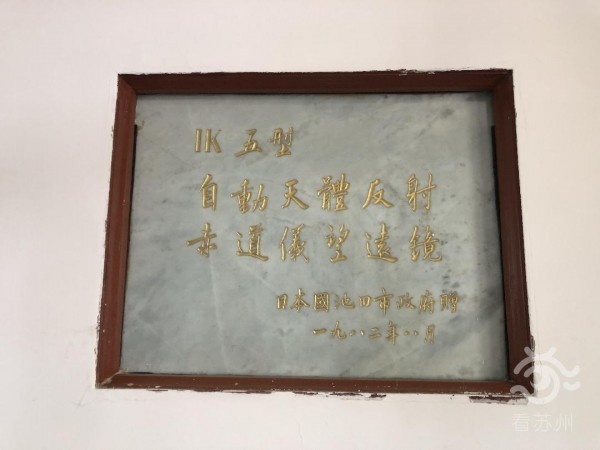 IK 五型
自動天體反射
赤道儀望遠鏡
日本國池田市政府贈
一九八二年八月
看苏州